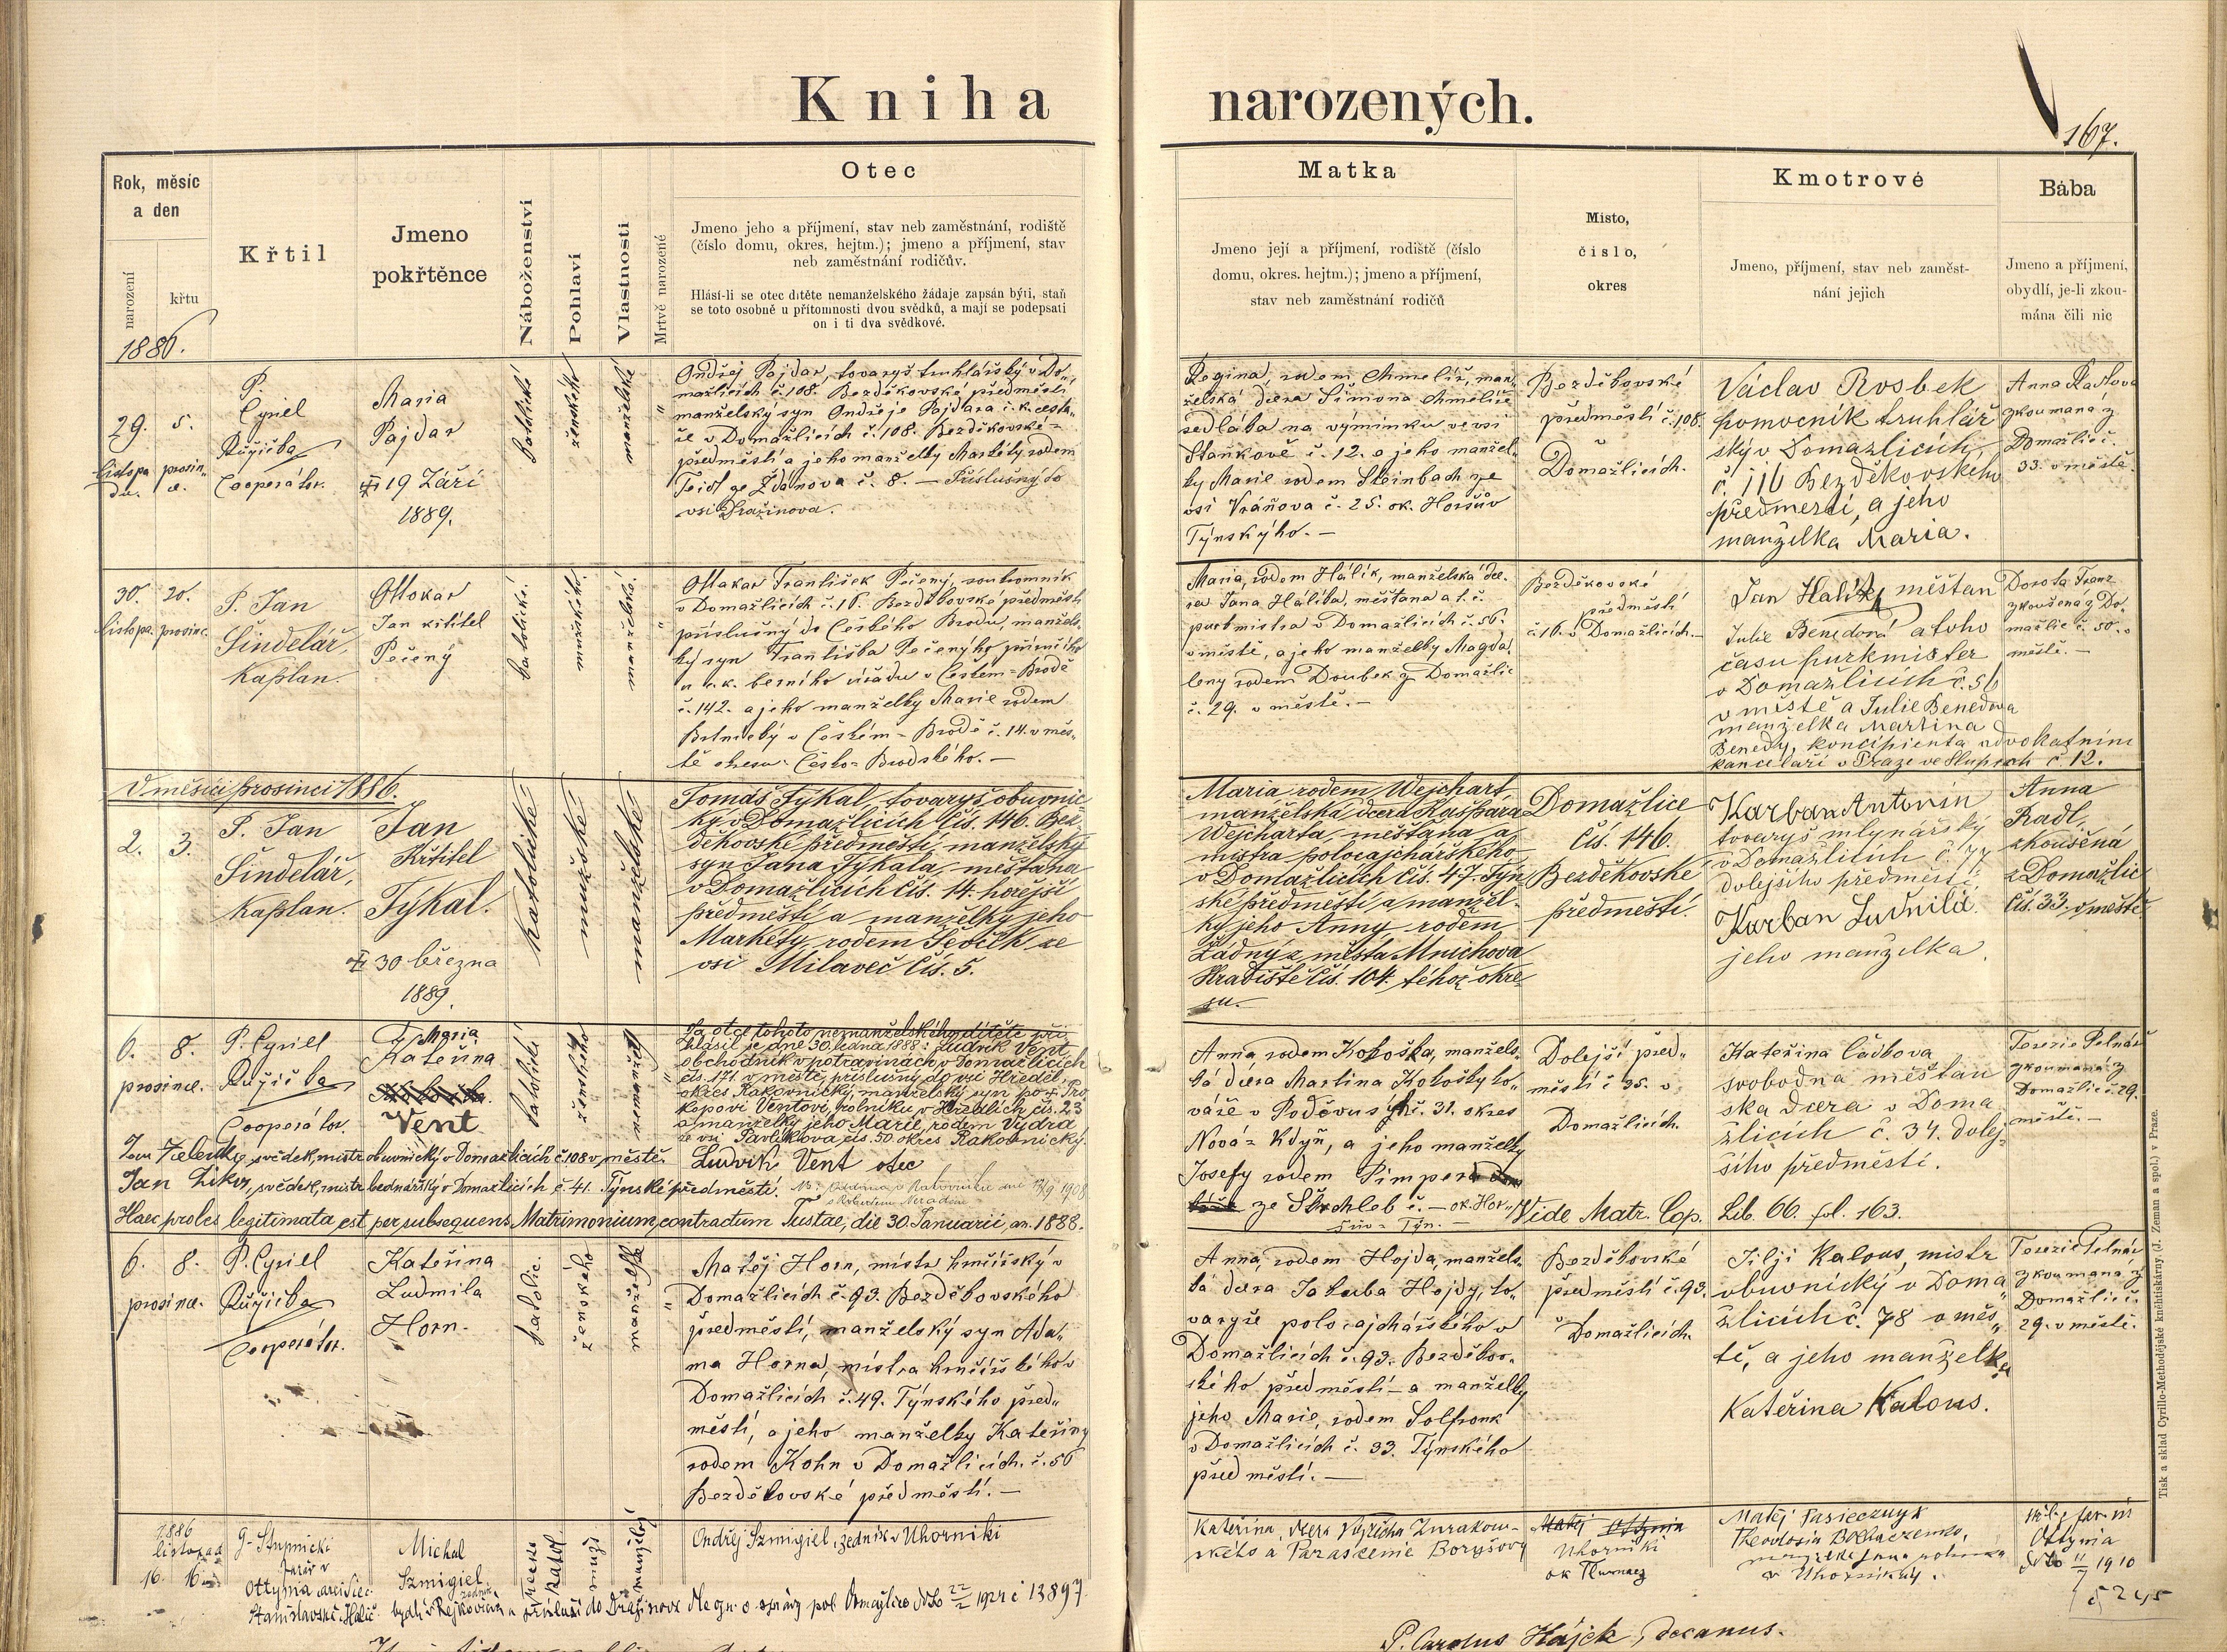 Kniha narozených.
167.
Rok, měsíc
a den
narození
křtu
1886.
Křtil
Jmeno
pokřtěnce
Náboženství
Pohlaví
Vlastnosti
Mrtvě narozené
Otec
Jmeno jeho a příjmení, stav neb zaměstnání, rodiště
(číslo domu, okres, hejtm.); jmeno a příjmení, stav
neb zaměstnání rodičův.
Hlásí-li se otec dítěte nemanželského žádaje zapsán býti, staň
se toto osobně u přítomnosti dvou svědků, a mají se podepsati
on i ti dva svědkové.
Matka
Jmeno její a příjmení, rodiště (číslo
domu, okres. hejtm.); jmeno a příjmení,
stav neb zaměstnání rodičů
Místo,
číslo,
okres
Kmotrové
Jmeno, příjmení, stav neb zaměst-
nání jejich
Bába
Jmeno a příjmení,
obydlí, je-li zkou-
mána čili nic
29.
listopa
du.
5.
prosin„
e.
P.
Cyriel
Růžička
Cooperátor.
Maria
Pajdar
19 Září
1889.
katolické
ženského
manželské
Ondřej Pajdar, tovaryš truhlářský v Do„
mažlicích č. 108. Bezděkovské předměstí
manželský syn Ondřeje Pajdara c. k. cesta„
ře v Domažlicích č. 108. Bezděkovské=
předměstí a jeho manželky Markéty rodem
Teidl ze Ždanova č. 8. — Příslušný do
vsi Dražinova.
Regina, rodem Chmelíř, man„
želská dcera Šimona Chmelíře
sedláka na výminku ve vsi
Staňkově č. 12. a jeho manžel„
ky Marie rodem Steinbach ze
vsi Vráňova č. 25. ok. Horšův
Týnskýho. —
Bezděkovské
předměstí č. 108.
v
Domažlicích.
Václav Rosbek
pomocník truhlář
ský v Domazlicích
č. 116 Bezděkovského
předmestí, a jeho
manželka Maria.
Anna
zkoumaná z
Domažlic č.
33. v městě.
30.
listopa.
20.
prosinc.
P. Jan
Šindelář,
kaplan.
Ottokar
Jan křtitel
Pečený
katolické.
mužského.
manželské.
Ottakar František Pečený, soukromník
v Domažlicích č. 16. Bezděkovské předměstí
příslušný do Českého Brodu, manžels„
ký syn Františka Pečenýho příručího
u c. k. berního úřadu v Českém=Brodě
č. 142. a jeho manželky Marie rodem
v Českém=Brodě č. 14. v měs„
tě okresu Česko=Brodského. —
Maria, rodem Hálík, manželská dce„
ra Jana Hálíka, měšťana a t. č.
purkmistra v Domažlicích č. 56.
v městě, a jeho manželky Magda„
leny rodem Doubek z Domažlic
č. 29. v městě. —
Bezděkovské
předměstí
č. 16. v Domažlicích. —
Jan Halík, měštan
Julie Benedová a toho
času purkmister
v Domažlicích č. 56
v městě a Julie Benedova
manželka Martina
Benedy, koncipienta advokatním
kanceláři v Praze ve Slupech č. 12.
Dorota Franz
zkoušená z Do„
mažlic č. 50. v
městě. —
V měsíci prosinci 1886.
2.
3.
P. Jan
Šindelář,
kaplan.
Jan
Křtitel
Týkal.
30 března
1889.
katolické
mužské
manželské
Tomáš Týkal, tovaryš obuvnic
ký v Domažlicích čís. 146. Bez
děkovské předměstí, manželský
syn Jana Týkala, měšťana
v Domažlicích čís. 14. hořejší
předměstí a manželky jeho
Markéty, rodem Ševčík ze
vsi Milaveč čís. 5.
Maria rodem Wejchart,
manželská dcera Kašpara
Wejcharta, měšťana a
mistra polocajchářského
v Domažlicích čís. 47. Týn
ské předměstí a manžel-
ky jeho Anny rodem
Žádný z města Mnichova
Hradiště čís. 104. téhož okre
su.
Domažlice
čís. 146.
Bezděkovské
předměstí.
Karban Antonín
tovaryš mlynářský
v Domažlicích č. 77
dolejšího předměstí
Karban Ludmila
jeho manželka.
Anna
Radl,
zkoušená
z Domažlic
čís. 33. v městě
6.
prosince.
8.
P. Cyriel
Růžička
Cooperátor.
Maria
Kateřina
Vent
katolické
ženského
nemanžels
Za otce tohoto nemanželského dítěte při
hlásil se dne 30. ledna 1888: Ludvík Vent,
obchodník v potravinách v Domažlicích
čís. 171. v městě, příslušný do vsi Hředel
okres Rakovnický, manželský syn po + Pro
kopovi Ventovi, rolníku v Hředlích čís. 23
a manželky jeho Marie, rodem Vydra
ze vsi Pavlíkova, čís. 50. okres Rakovnický.
Ludvík Vent otec
svědek, mistr obuvnický v Domažlicích č 108 v městě.
Jan svědek, mistr bednářský v Domažlicích č 41. Týnské předměstí.
Haec proles legitimata est per subsequens Matrimonium, contractum Tustae, die 30. Januarii, an. 1888.
Vide Matr. Cop. Lib. 66. fol. 163.
Anna, rodem Kohoška, manžels„
ká dcera Martina Kohošky to„
váře v Poděvusých č. 31. okres
Nová=Kdyň, a jeho manželky
Josefy rodem Pimper
ze Štichleb č. — ok. Hor„
šův=Týn. —
Dolejší před„
městí č 35. v
Domažlicích.
Kateřina
svobodna měštan
ska dcera v Doma
žlicích č. 34. dolej
šího předměstí.
Terezie Pelnář
zkoumaná z
Domažlic č. 29.
městě. —
6.
prosince.
8.
P. Cyriel
Růžička
Cooperátor.
Kateřina
Ludmila
Horn.
katolic.
ženského
manželské
Matěj Horn, mistr hrnčířský v
Domažlicích č. 93. Bezděkovského
předměstí, manželský syn Ada„
ma Horna, mistra hrnčířského v
Domažlicích č. 49. Týnského před„
městí, a jeho manželky Kateřiny
rodem Kohn v Domažlicích. č. 56
Bezděkovské předměstí. —
Anna, rodem Hojda, manžels„
ká dcera Jakuba Hojdy, to„
varyše polocajchářského v
Domažlicích č. 93. Bezděkov„
ského předměstí — a manželky
jeho Marie, rodem Solfronk
v Domažlicích č. 33. Týnského
předměstí. —
Bezděkovské
předměstí č. 93.
v
Domažlicích.
Jiljí Kalous, mistr
obuvnický v Doma„
žlicích č. 78 v měs„
tě, a jeho manželka
Kateřina Kalous.
Terezie Pelnář
zkoumaná z
Domažlic č.
29. v městě.
1886
listopad
16.
16
G. Stupnicki
farář v
Ottynia
Michal
Szmigiel
řecko
katol
mužs
manželský
Ondřej Szmigiel, zedník v Uhorniki
Kateřina, dcera Zurakow-
ského a Paraskenie Boryšovy
Matěj Ottynia
Uhorniki
ok Tlumacz
Matěj Pasieczuyk
Theodosia
Uhornikách.
Ottynia
1910
č 5245
P. Carolus Hájek, decanus.
Tisk a sklad Cyrillo-Methodějské knihtiskárny (J. Zeman a spol.) v Praze.